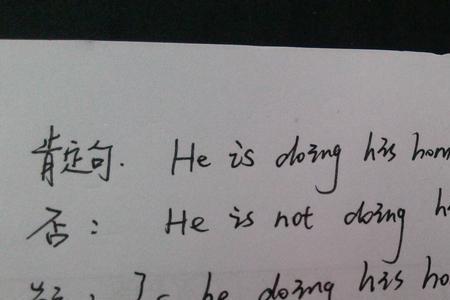 肯定句. He is doing his hom
否: He is not doing h
: Is he doing his ho